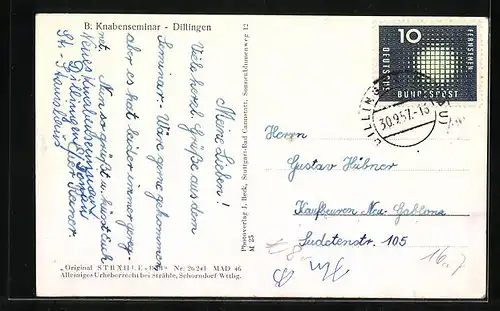 B. Knabenseminar - Dillingen
Meine Lieben!
Viele herzl. Grüße aus dem
Seminar. Wäre gerne gekommen
aber es hat leider immer
net. Nun so grüßt u. küsst euch
Neues Knabenseminar
Dillingen a. Donau
Photoverlag J. Beck, Stuttgart-Bad Cannstatt, Sonnenblumenweg 12
M 25
„Original STRÄHLE-Bild" Nr. 26241 MAD 46
Alleiniges Urheberrecht bei Strähle, Schorndorf Wttbg.
10
FERNSEHEN
DEUTSCHE
BUNDESPOST
30.9.57.-15
Herrn
Gustav Hübner
Kaufbeuren Neu-Gablonz
Sudetenstr. 105